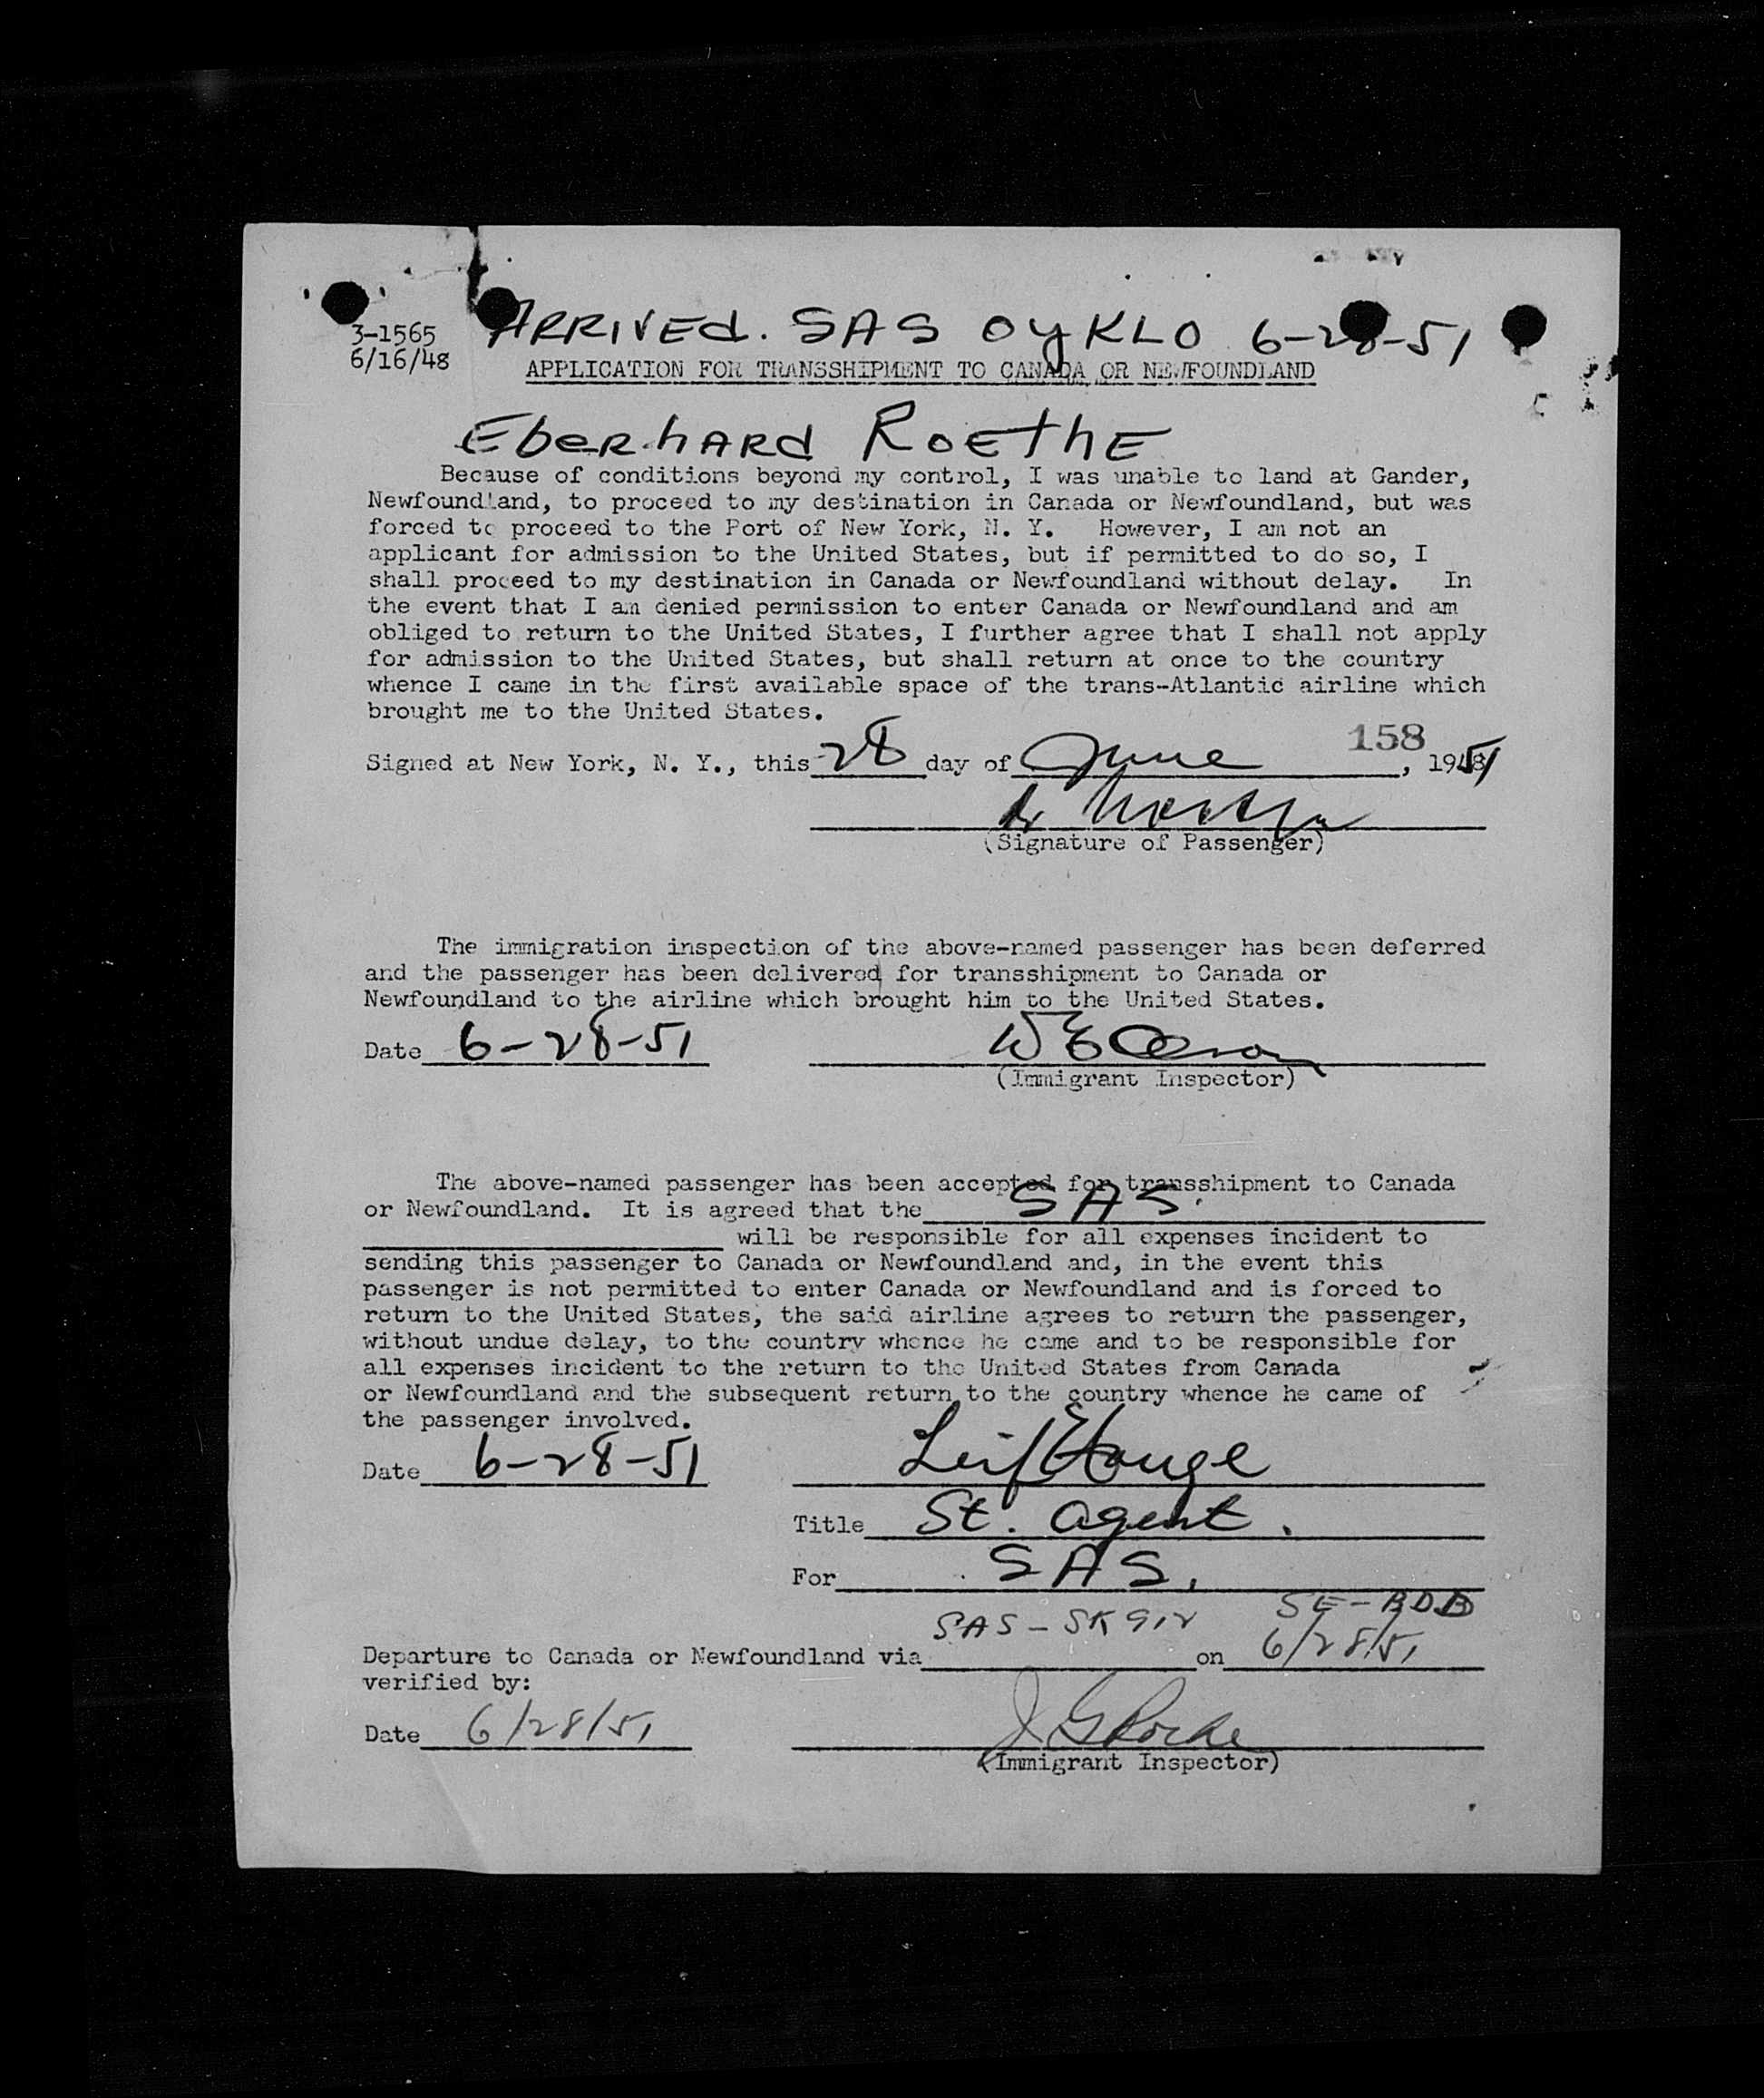 ARRIVED. SAS OYKLO 6-28-51
3-1565
6/16/48
APPLICATION FOR TRANSSHIPMENT TO CANADA OR NEWFOUNDLAND
Eberhard Roethe
Because of conditions beyond my control, I was unable to land at Gander,
Newfoundland, to proceed to my destination in Canada or Newfoundland, but was
forced to proceed to the Port of New York, N. Y. However, I am not an
applicant for admission to the United States, but if permitted to do so, I
shall proceed to my destination in Canada or Newfoundland without delay. In
the event that I am denied permission to enter Canada or Newfoundland and am
obliged to return to the United States, I further agree that I shall not apply
for admission to the United States, but shall return at once to the country
whence I came in the first available space of the trans-Atlantic airline which
brought me to the United States.
158
Signed at New York, N. Y., this 28 day of June, 1951
(Signature of Passenger)
The immigration inspection of the above-named passenger has been deferred
and the passenger has been delivered for transshipment to Canada or
Newfoundland to the airline which brought him to the United States.
Date 6-28-51
(Immigrant Inspector)
The above-named passenger has been accepted for transshipment to Canada
or Newfoundland. It is agreed that the SAS.
will be responsible for all expenses incident to
sending this passenger to Canada or Newfoundland and, in the event this
passenger is not permitted to enter Canada or Newfoundland and is forced to
return to the United States, the said airline agrees to return the passenger,
without undue delay, to the country whence he came and to be responsible for
all expenses incident to the return to the United States from Canada
or Newfoundland and the subsequent return to the country whence he came of
the passenger involved.
Date 6-28-51 Leif Hauge
Title St. agent.
For SAS.
SAS - SK 912 SE-BDB
Departure to Canada or Newfoundland via on 6/28/51
verified by:
Date 6/28/51
(Immigrant Inspector)